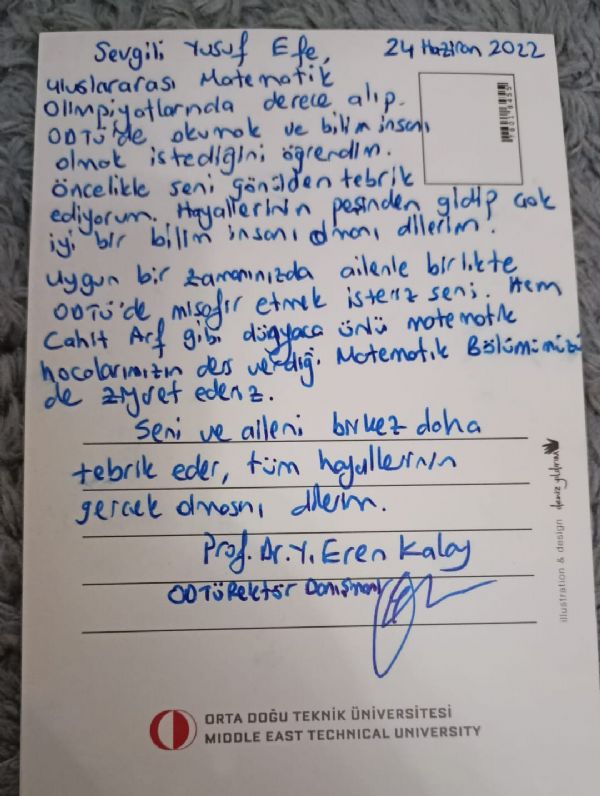 Sevgili Yusuf Efe, 24 Haziran 2022
uluslararası Matematik
Olimpiyatlarında derece alıp
ODTÜ'de okumak ve bilim insanı
olmak istediğini öğrendim.
öncelikle seni gönülden tebrik
ediyorum. Hayallerinin peşinden gidip çok
iyi bir bilim insanı olmanı dilerim.
uygun bir zamanınızda ailenle birlikte
ODTÜ'de misafir etmek isteriz seni. Hem
Cahit Arf gibi dünyaca ünlü matematik
hocalarımızın ders verdiği Matematik Bölümümüzü
de ziyaret ederiz.
Seni ve aileni bir kez daha
tebrik eder, tüm hayallerinin
gerçek olmasını dilerim.
Prof. Dr. Y. Eren Kalay
ODTÜ Rektör Danışmanı
illustration & design
ORTA DOĞU TEKNİK ÜNİVERSİTESİ
MIDDLE EAST TECHNICAL UNIVERSITY